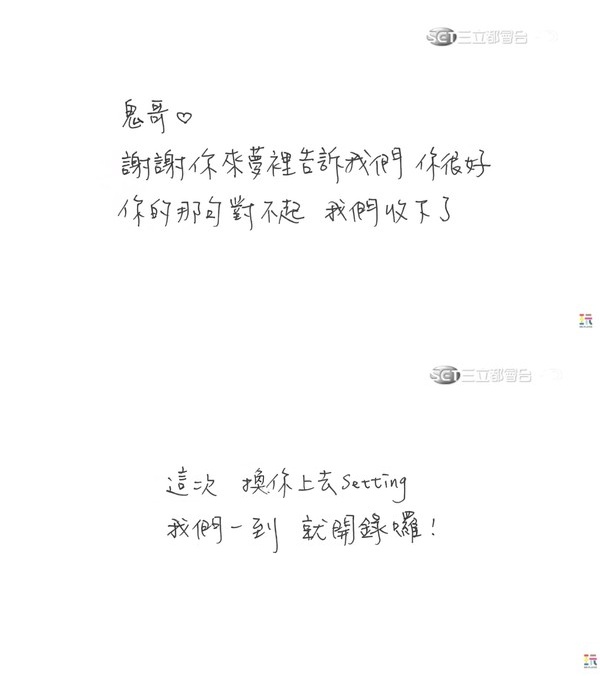 SET三立都會台
鬼哥♡
謝謝你來夢裡告訴我們 你很好
你的那句對不起 我們收下了
玩
SET三立都會台
這次 換你上去Setting
我們一到 就開錄囉!
玩